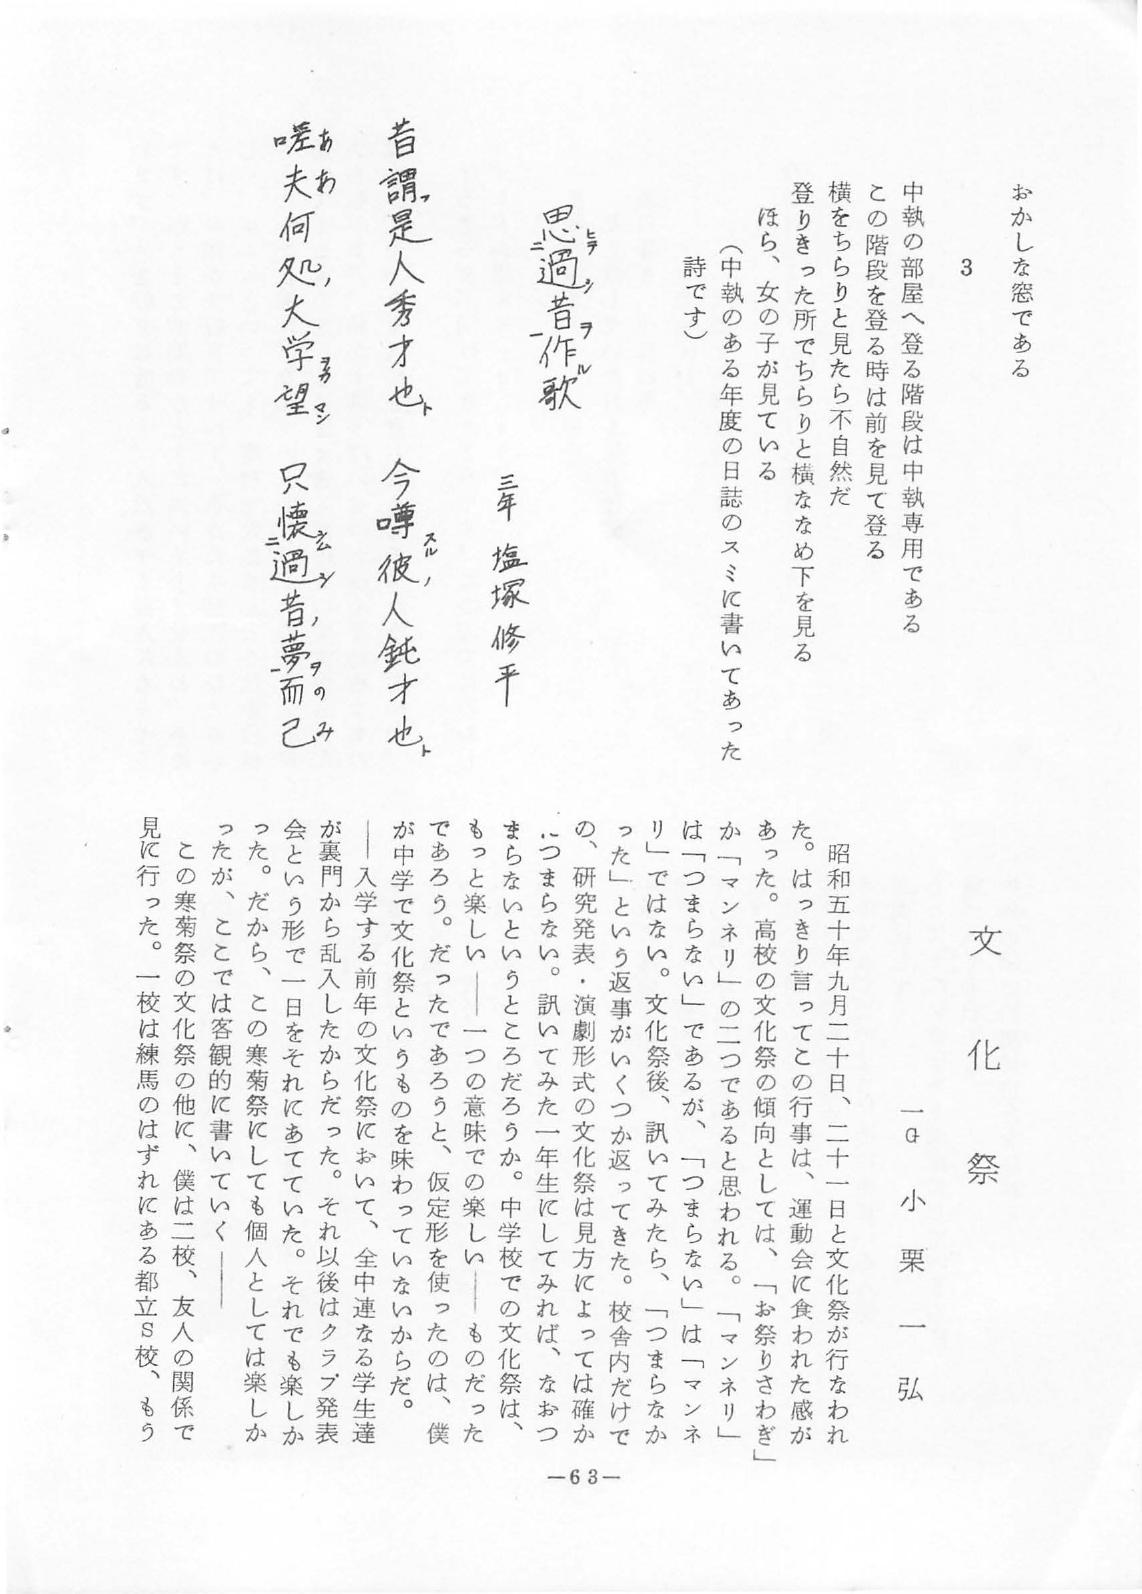 おかしな窓である
3
中執の部屋へ登る階段は中執専用である
この階段を登る時は前を見て登る
横をちらりと見たら不自然だ
登りきった所でちらりと横ななめ下を見る
ほら、女の子が見ている
（中執のある年度の日誌のスミに書いてあった
詩です）
思ヒテ二過シ昔ヲ一作ル歌
三年 塩塚修平
昔謂ッ是人秀才也ト 今噂スル彼ノ人鈍才也ト
嗟ああ夫何処ノ大学望ヲカマシ 只懐ム二過シ昔ノ夢ヲ一而已のみ
文化祭
一G 小栗一弘
昭和五十年九月二十日、二十一日と文化祭が行なわれ
た。はっきり言ってこの行事は、運動会に食われた感が
あった。高校の文化祭の傾向としては、「お祭りさわぎ」
か「マンネリ」の二つであると思われる。「マンネリ」
は「つまらない」であるが、「つまらない」は「マンネ
リ」ではない。文化祭後、訊いてみたら、「つまらなか
った」という返事がいくつか返ってきた。校舎内だけで
の、研究発表・演劇形式の文化祭は見方によっては確か
につまらない。訊いてみた一年生にしてみれば、なおつ
まらないというところだろうか。中学校での文化祭は、
もっと楽しい――一つの意味での楽しい――ものだった
であろう。だったであろうと、仮定形を使ったのは、僕
が中学で文化祭というものを味わっていないからだ。
――入学する前年の文化祭において、全中連なる学生達
が裏門から乱入したからだった。それ以後はクラブ発表
会という形で一日をそれにあてていた。それでも楽しか
った。だから、この寒菊祭にしても個人としては楽しか
ったが、ここでは客観的に書いていく――
この寒菊祭の文化祭の他に、僕は二校、友人の関係で
見に行った。一校は練馬のはずれにある都立S校、もう
―63―